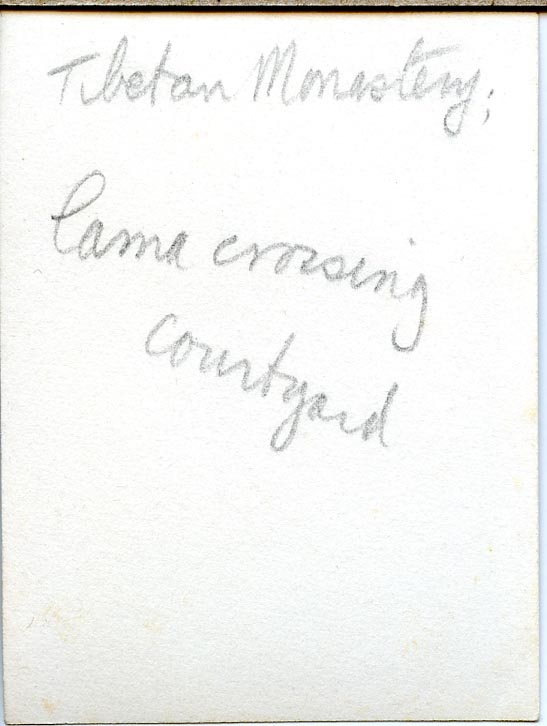 Tibetan Monastery;
lama crossing
courtyard